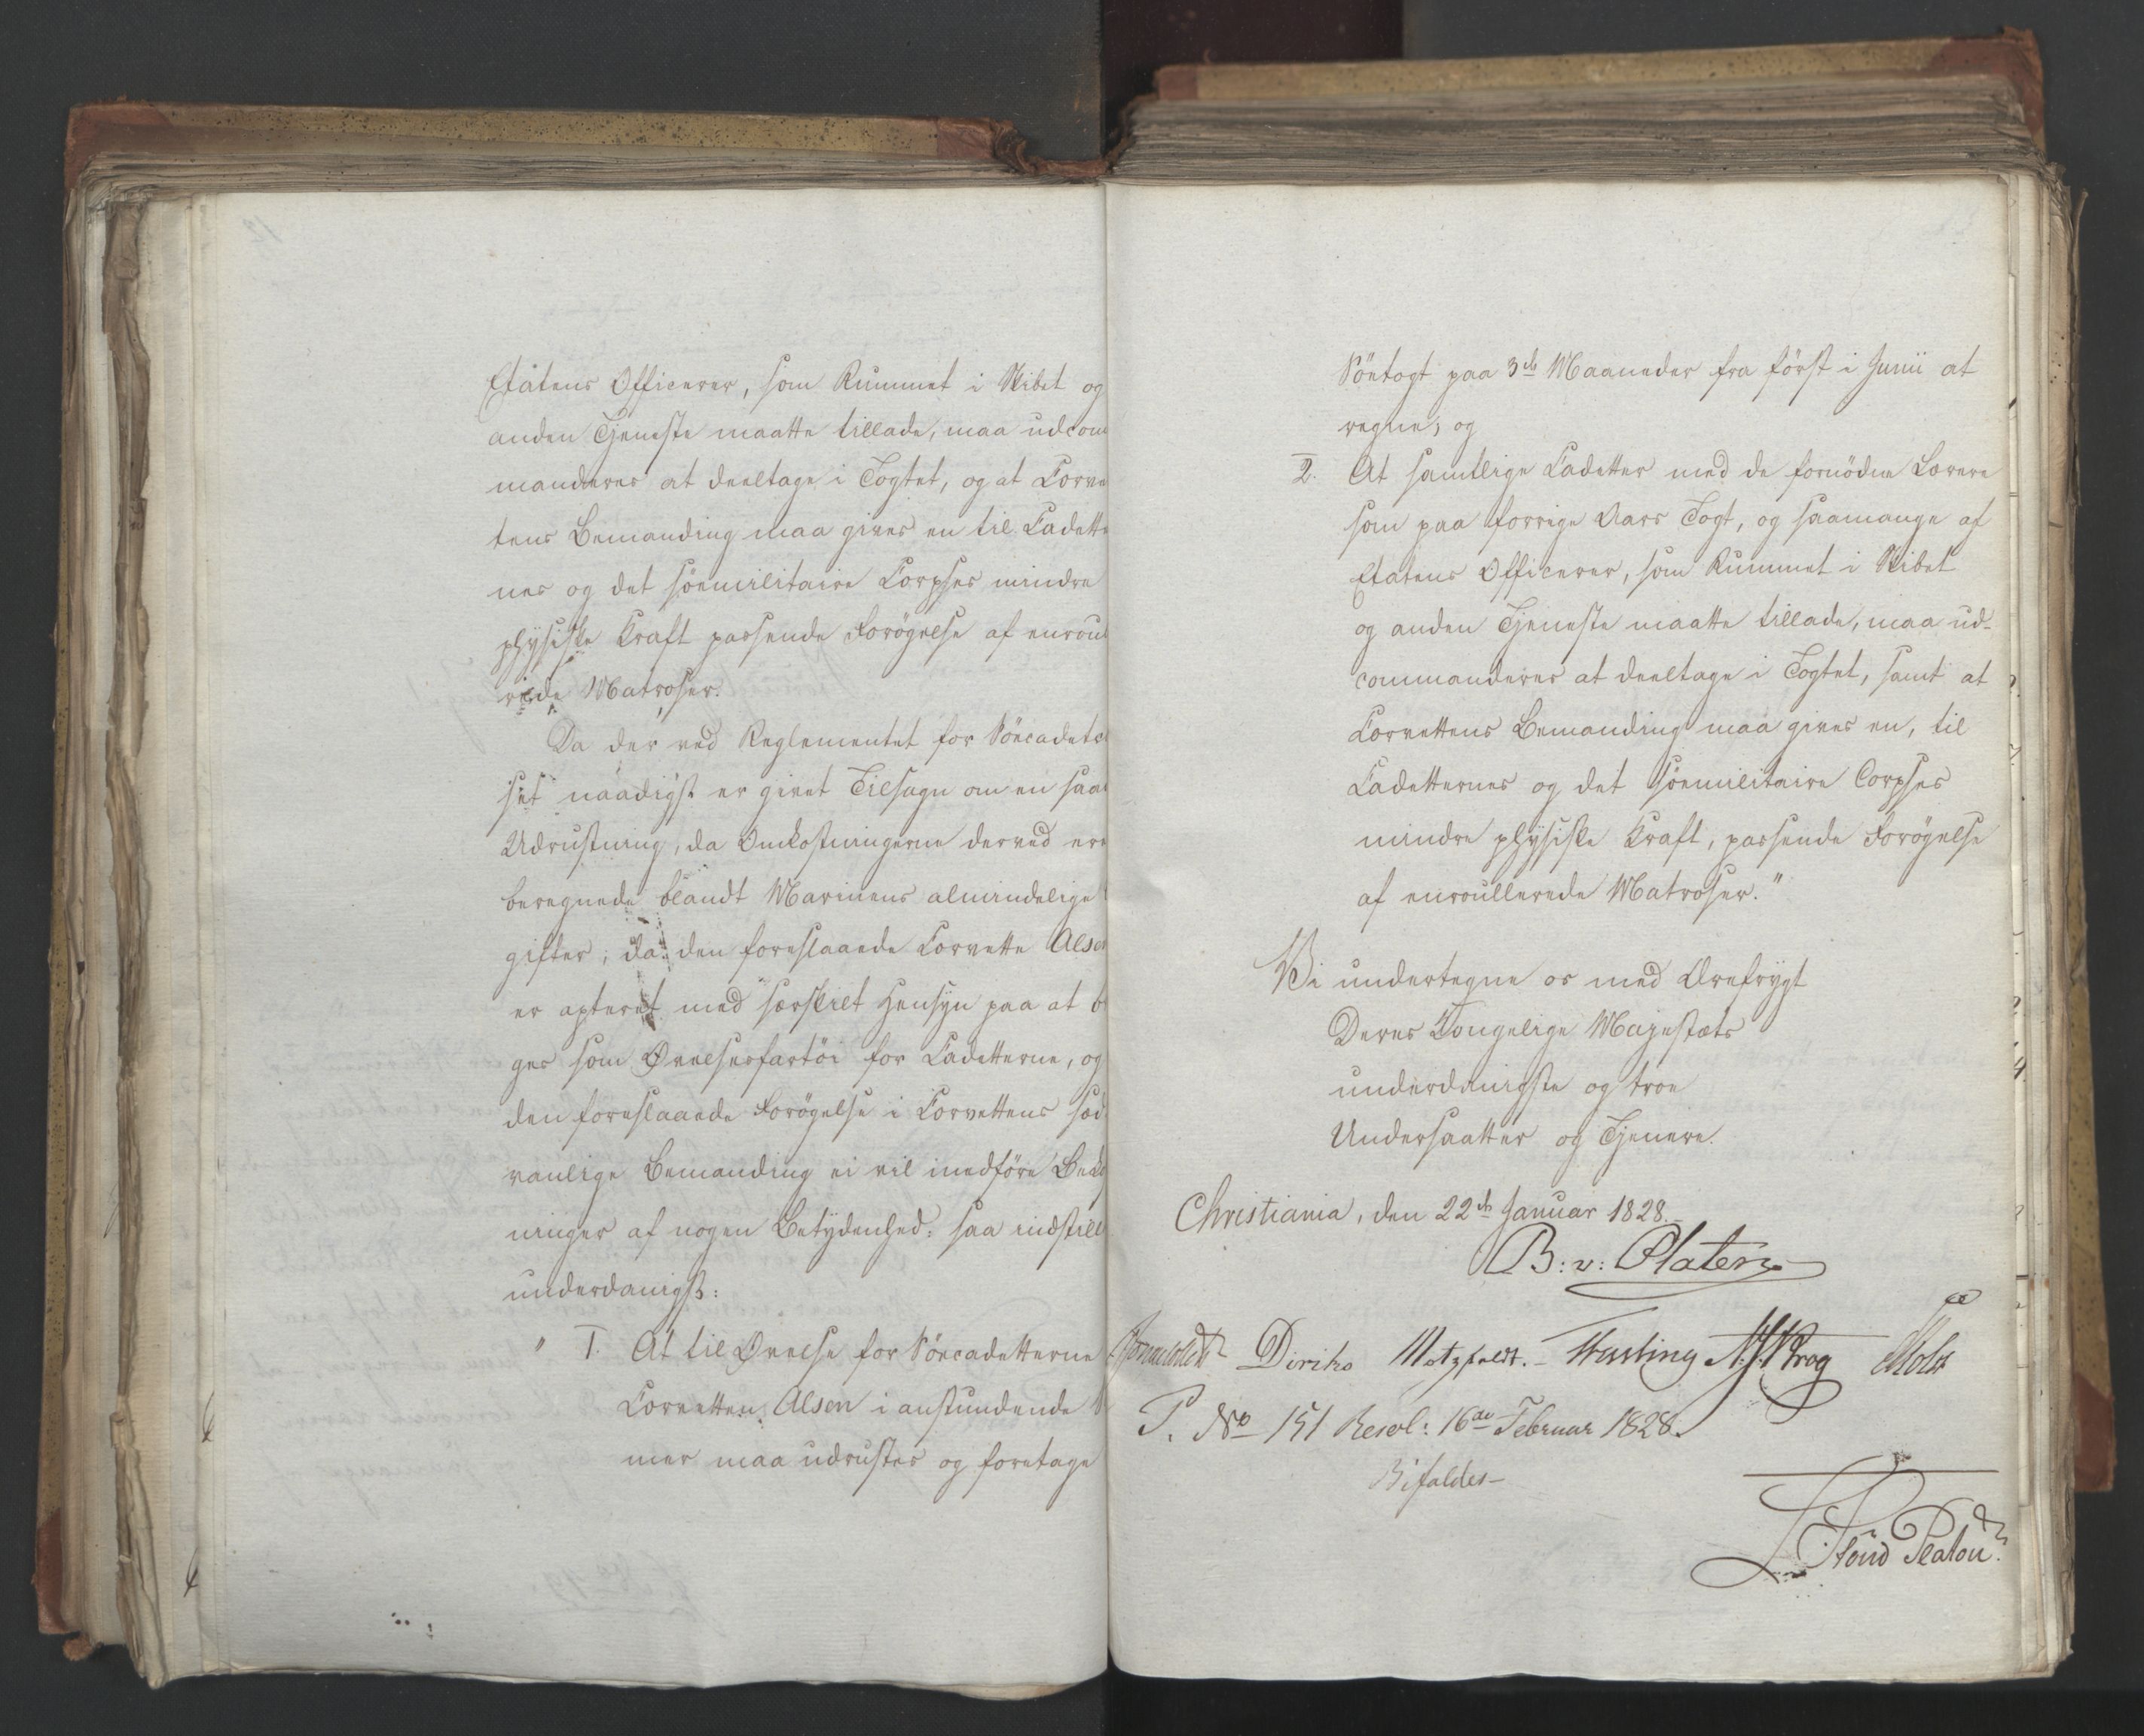 Etatens Officerer, som Rummet i Skibet og
anden Tjeneste maatte tillade, maa udcom
manderes at deeltage i Togtet, og at Corve
tens Bemanding maa gives en til Cadette
nes og det søemilitaire Corpses mindre
physiske Kraft passende Forøgelse af enroul
rede Matroser.
Da der ved Reglementet for Söecadet
set naadigst er givet Tilsagn om en saa
Udrustning, da Omkostningerne derved ere
beregnede blandt Marinens almindelige
gifter, da den foreslaaede Corvette Alsen
er apteret med særskilt Hensyn paa at b
ges som Øvelsesfartöi for Cadetterne, og
den foreslaaede Forögelse i Corvettens sæd
vanlige Bemanding ei vil medføre Beko
ninger af nogen Betydenhed: saa indstill
underdanigst:
" 1. At til Øvelse for Söecadetterne
Corvetten Alsen i anstundende
mer maa udrustes og foretage
Söetogt paa 3de Maaneder fra först i Junii at
regne; og
2. At samtlige Cadetter med de fornödne Lærere
som paa forrige Aars Togt, og saamange af
Etatens Officerer, som Rummet i Skibet
og anden Tjeneste maatte tillade, maa ud-
commanderes at deeltage i Togtet, samt at
Corvettens Bemanding maa gives en, til
Cadetternes og det söemilitaire Corpses
mindre physiske Kraft, passende Forögelse
af enroullerede Matroser."
Vi undertegne os med Ærefrygt
Deres Kongelige Majestæts
underdanigste og troe
Undersaatter og Tjenere.
Christiania, den 22de Januar 1828.
B: v: Platen
Diriks Motzfeldt. Fasting Krog Holst
P. No 151 Resol: 16de Februar 1828.
Bifaldes